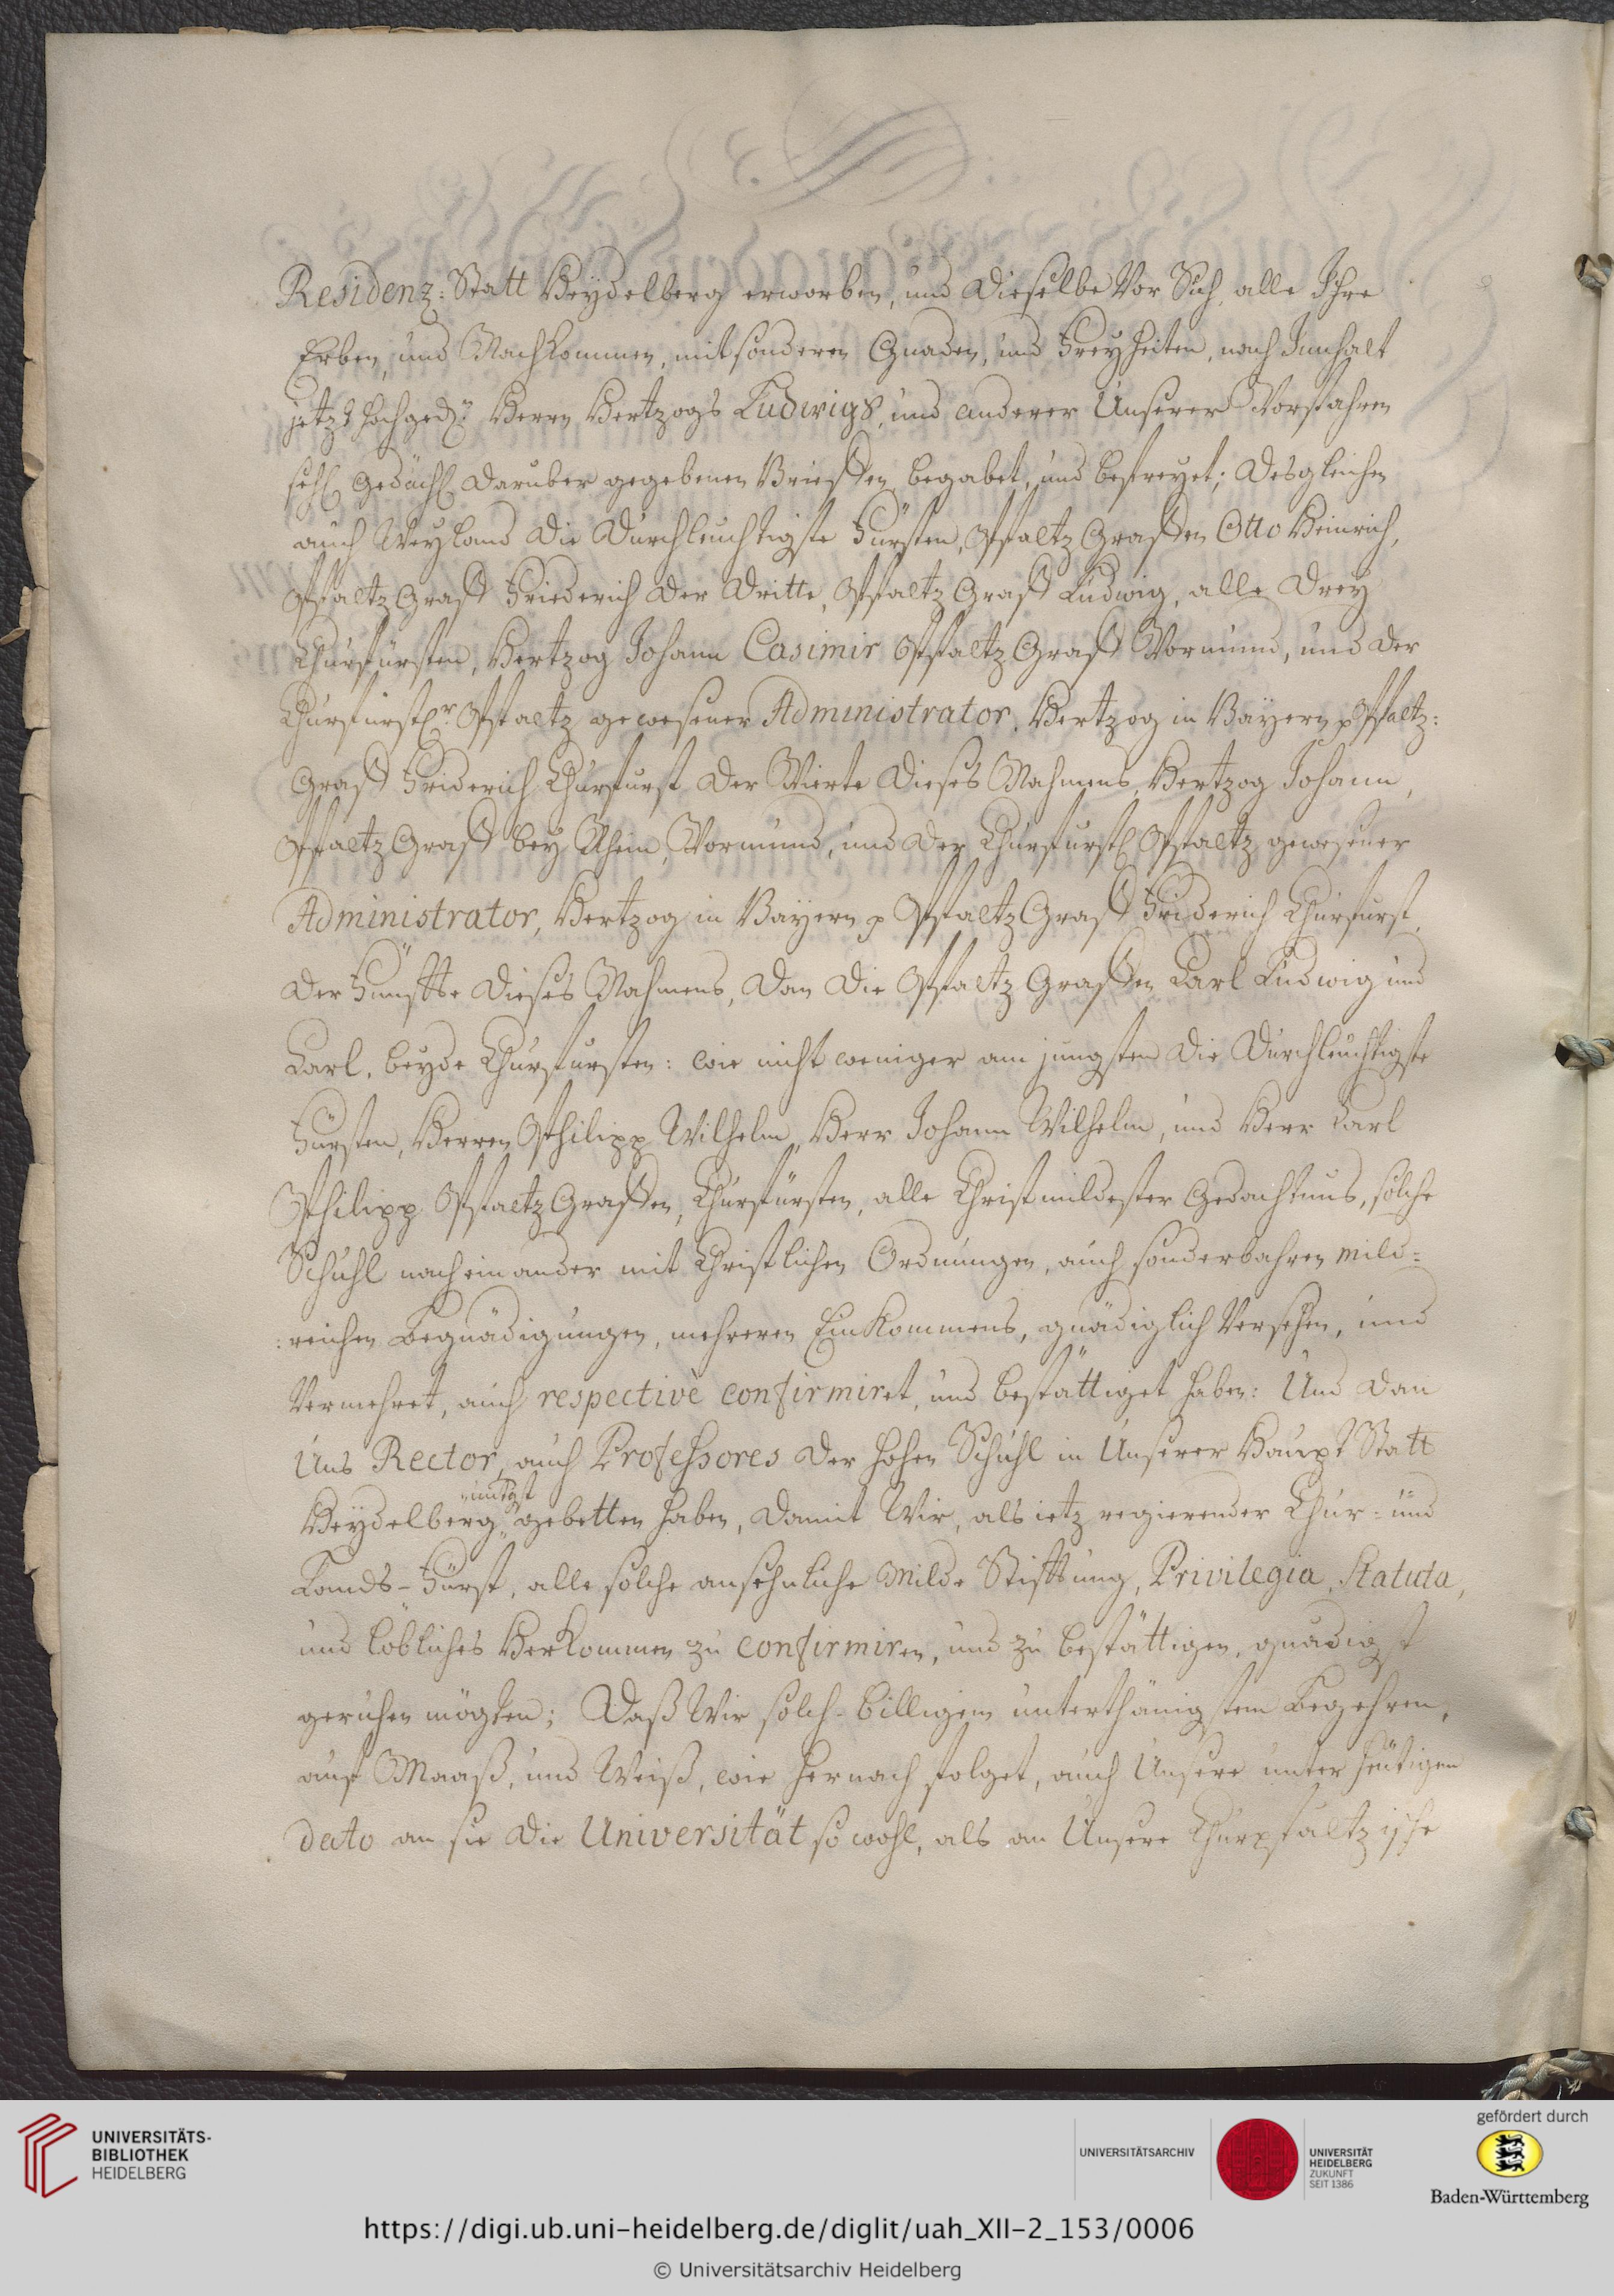 Residenz-Statt Heydelberg erworben, und dieselbe vor Sich, alle Ihre
Erben, und Nachkommen, mit sonderen Gnaden, und Freyheiten, nach Innhalt
jetzt hochged.r Herrn Hertzogs Ludwigs, und anderer Unserer Vorfahren
seel. Gedächt. daruber gegebenen Brieffen begabet, und befreyet; desgleichen
auch Weyland die Durchleuchtigste Fürsten, Pfaltz Graffen Otto Heinrich,
Pfaltz Graff Friederich der Dritte, Pfaltz Graff Ludwig, alle drey
Churfürsten, Hertzog Johann Casimir Pfaltz Graff Vormund, und der
Churfürstl.r Pfaltz gewesener Administrator, Hertzog in Bayern p Pfaltz:
Graff Friderich Churfurst der Vierte dieses Nahmens, Hertzog Johann,
Pfaltz Graff bey Rhein, Vormund, und der Churfurstl. Pfaltz gewesener
Administrator, Hertzog in Bayern p Pfaltz Graff Friderich Churfurst,
der Funffte dieses Nahmens, dan die Pfaltz Graffen Carl Ludwig und
Carl, beyde Churfursten: wie nicht weniger am jungsten die Durchleuchtigste
Fürsten, Herren Philipp Wilhelm, Herr Johann Wilhelm, und Herr Carl
Philipp Pfaltz Graffen, Churfürsten, alle Christmildester Gedachtnus, solche
Schuhl nach einander mit Christlichen Ordnungen, auch sonderbahren mild-
:reichen Begnädigungen, mehreren Einkommens, gnädiglich versehen, und
vermehret, auch respectivè confirmiret, und bestättiget haben: Und dan
Uns Rector, auch Professores der hohen Schuhl in Unserer Haupt Statt
undgst
Heydelberg gebetten haben, damit Wir, als ietz regierender Chur- und
Lands-Fürst, alle solche ansehnliche milde Stifftung, Privilegia, Statuta,
und löbliches Herkommen zu confirmiren, und zu bestättigen, gnädigst
geruhen mögten; Daß Wir solch-billigem unterthänigstem Begehren,
auf Maaß, und Weiß, wie hernach folget, auch Unsere unter heutigem
dato an sie die Universität so wohl, als an Unsere Churpfaltzische
UNIVERSITÄTS-
BIBLIOTHEK
HEIDELBERG
UNIVERSITÄTSARCHIV
UNIVERSITÄT
HEIDELBERG
ZUKUNFT
SEIT 1386
gefördert durch
Baden-Württemberg
https://digi.ub.uni-heidelberg.de/diglit/uah_XII-2_153/0006
© Universitätsarchiv Heidelberg